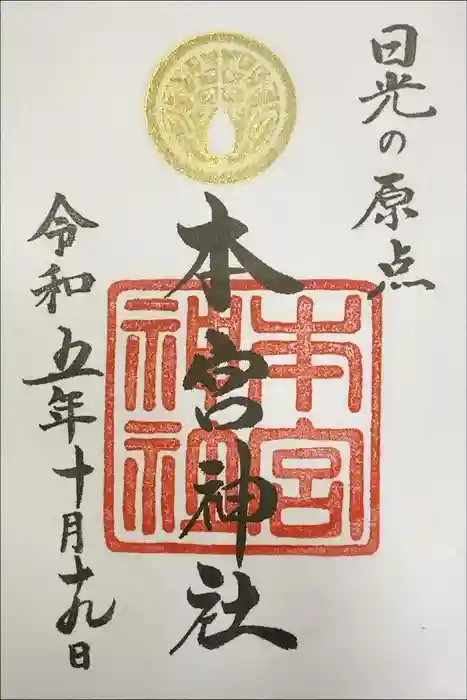 日光の原点
本宮神社
本宮
神社
令和五年十月十九日